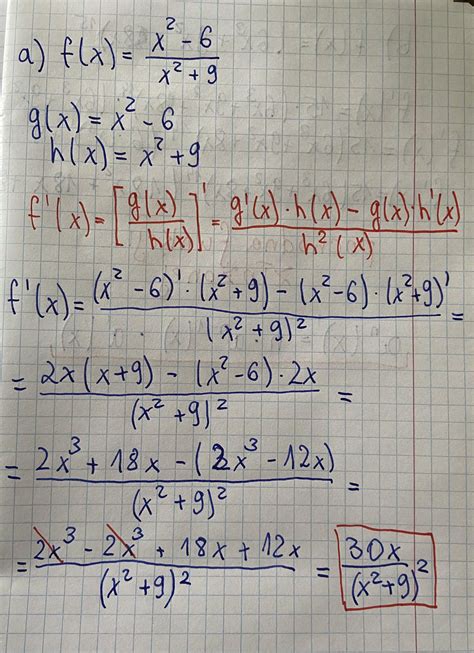 a) f(x) = \frac{x^2 - 6}{x^2 + 9}
g(x) = x^2 - 6
h(x) = x^2 + 9
f'(x) = \left[\frac{g(x)}{h(x)}\right]' = \frac{g'(x) \cdot h(x) - g(x) \cdot h'(x)}{h^2(x)}
f'(x) = \frac{(x^2 - 6)' \cdot (x^2 + 9) - (x^2 - 6) \cdot (x^2 + 9)'}{(x^2 + 9)^2} =
= \frac{2x(x + 9) - (x^2 - 6) \cdot 2x}{(x^2 + 9)^2} =
= \frac{2x^3 + 18x - (2x^3 - 12x)}{(x^2 + 9)^2} =
= \frac{2x^3 - 2x^3 + 18x + 12x}{(x^2 + 9)^2} = \frac{30x}{(x^2 + 9)^2}